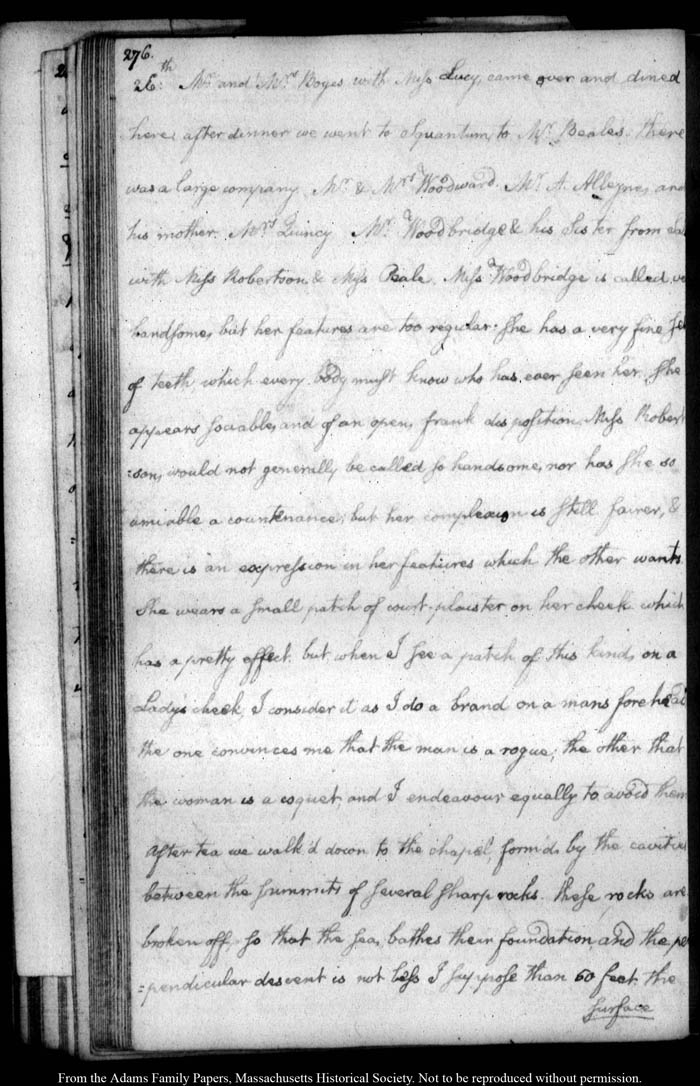 276.
26th. Mr. and Mrs. Boyes with Miss Lucy, came over and dined
here; after dinner we went to Squantum, to Mr. Beale's. There
was a large company. Mr. & Mrs. Woodward. Mr. A. Alleyne, and
his mother. Mrs. Quincy Mr. Woodbridge & his Sister from
with Miss Robertson, & Miss Beale. Miss Woodbridge is called, ve
handsome, but her features are too regular. She has a very fine set
of teeth, which every body must know who has ever seen her. She
appears sociable, and of an open, frank disposition. Miss Robert
=son, would not generally be called so handsome, nor has she so
amiable a countenance; but her complexion is still fairer, &
there is an expression in her features which the other wants.
She wears a small patch of court-plaister on her cheek which
has a pretty effect. but when I see a patch of this kind, on a
Lady's cheek, I consider it as I do a brand on a mans forehead
the one convinces me that the man is a rogue; the other that
the woman is a coquet, and I endeavour equally to avoid them
After tea we walk'd down to the chapel, form'd, by the cavities
between the summits of several sharp rocks. these rocks are
broken off, so that the sea, bathes their foundation, and the per
=pendicular descent is not less I suppose than 60 feet. the
surface
From the Adams Family Papers, Massachusetts Historical Society. Not to be reproduced without permission.